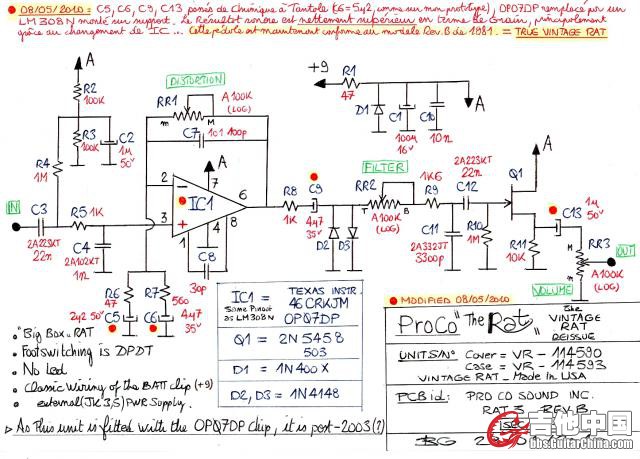 08/05/2010 = C5, C6, C9, C13
OP07DP remplacé par un
LM308N monté sur support. Le Résultat sonore est nettement supérieur en terme de Grain, principalement
grâce au changement de IC ... Cette pédale est maintenant conforme au modèle Rev.B de 1981. = TRUE VINTAGE RAT
A
R2
100K
R3
100K
C2
1µ
50V
R4
1M
DISTORTION
RR1
A100K
(LOG)
M
C7
101 100p
+9
R1
47
D1
C1
100µ
16V
C10
10n
A
IN
C3
2A223KT
22n
R5
1K
C4
2A102KT
1n
2
3
IC1
A
7
6
1
4
8
C8
30p
R8
1K
C9
4µ7
35V
D2
D3
FILTER
RR2
A100K
(LOG)
T
B
R9
1K6
C11
2A332JT
3300p
C12
2A223KT
22n
R10
1M
Q1
A
R11
10K
C13
1µ
50V
M
RR3
A100K
(LOG)
OUT
VOLUME
R6
47
R7
560
2µ2 50V
C5
C6
4µ7
35V
IC1 =
Same Pinout
as LM308N
TEXAS INSTR.
46CRKJM
OP07DP
Q1 =
2N5458
503
D1 =
1N400X
D2, D3 =
1N4148
MODIFIED 08/05/2010
ProCo "The Rat"
The
VINTAGE
RAT
REISSUE
UNIT S/N° Cover = VR - 114590
Case = VR - 114593
VINTAGE RAT - Made in USA
PCB id: PRO CO SOUND INC.
RAT 3 - REV.B
BG
"Big Box" RAT
Footswitching is DPDT
No Led
Classic Wiring of the BATT clip (+9)
external (JK 3,5) PWR Supply.
As This unit is fitted with the OP07DP Chip, it is post-2003 (?)
吉他中国
bbs.GuitarChina.com